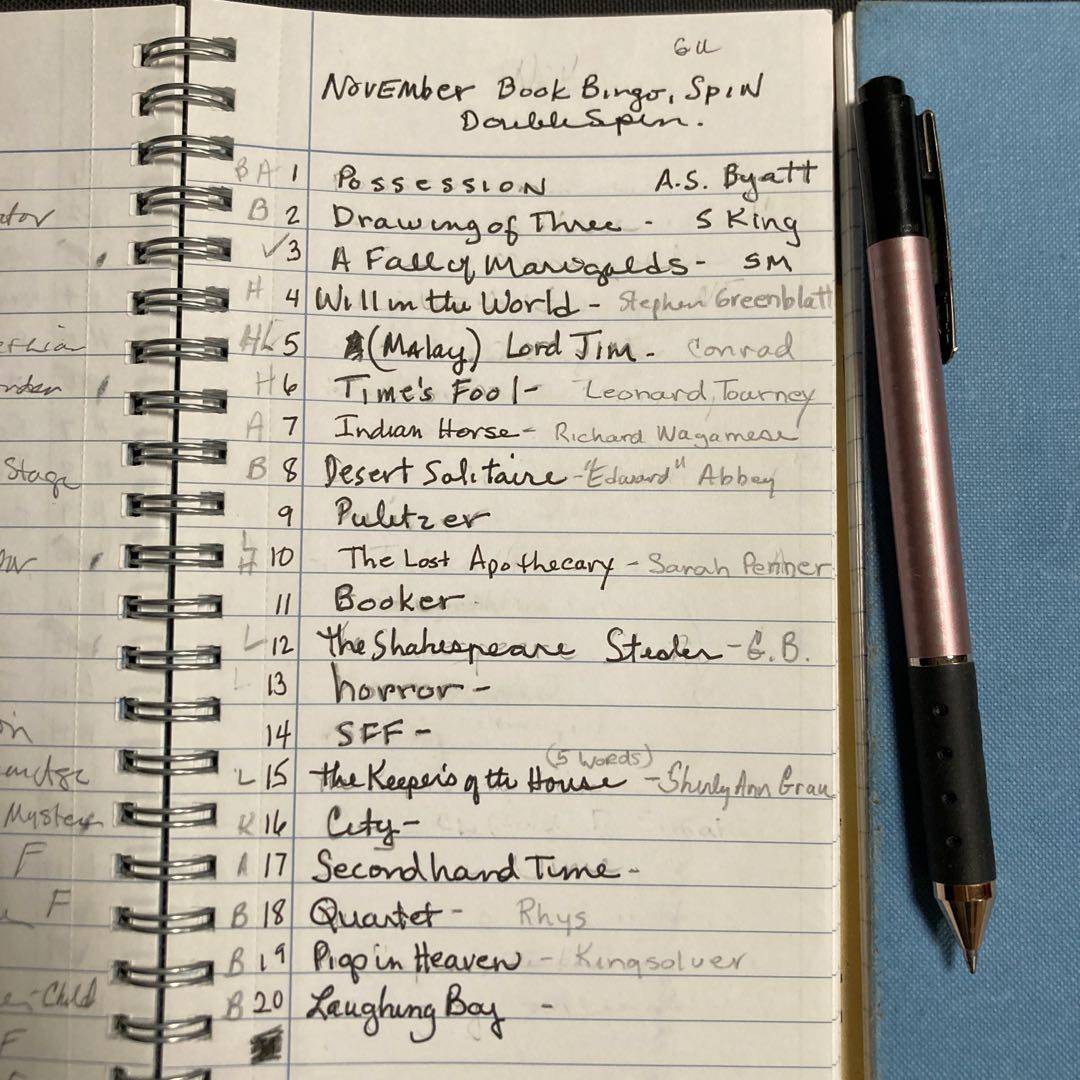 NOVEMBER Book Bingo, SPIN
Double Spin.
B A 1 Possession A.S. Byatt
B 2 Drawing of Three - S King
✓ 3 A Fall of Marigolds - SM
H 4 Will in the World - Stephen Greenblatt
HL 5 (Malay) Lord Jim - Conrad
H 6 Time's Fool - Leonard Tourney
A 7 Indian Horse - Richard Wagamese
B 8 Desert Solitaire - "Edward" Abbey
9 Pulitzer
L H 10 The Lost Apothecary - Sarah Penner
11 Booker
L 12 the Shakespeare Stealer - G.B.
L 13 horror -
14 SFF -
(5 words)
L 15 the Keepers of th House - Shirly Ann Grau
K 16 City -
A 17 Secondhand Time -
B 18 Quartet - Rhys
B 19 Pigs in Heaven - Kingsolver
B 20 Laughing Boy -
Stage
Mystery
F
F
Child
F